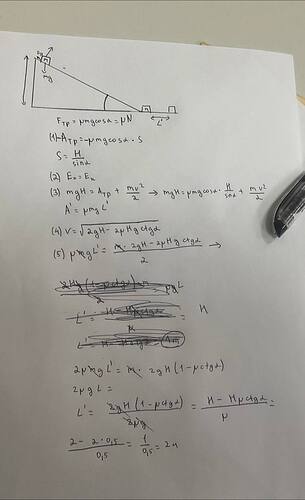 mg
L'
Fтр = μmgcosα = μN
(1) -Aтр = -μmgcosα · S
S = H/sinα
(2) Eп = Eк
(3) mgH = Aтр + mv²/2 → mgH = μmgcosα · H/sinα + mv²/2
A' = μmgL'
(4) v = √2gH - 2μHg ctgα
(5) μmgL' = m · 2gH - 2μHg ctgα / 2 →
μgL
L' = = H
μ
2μmgL' = m · 2gH (1 - μctgα)
2μgL =
L' = 2gH (1 - μctgα) / 2μg = H - Hμctgα / μ =
2 - 2 · 0,5 / 0,5 = 1/0,5 = 2м